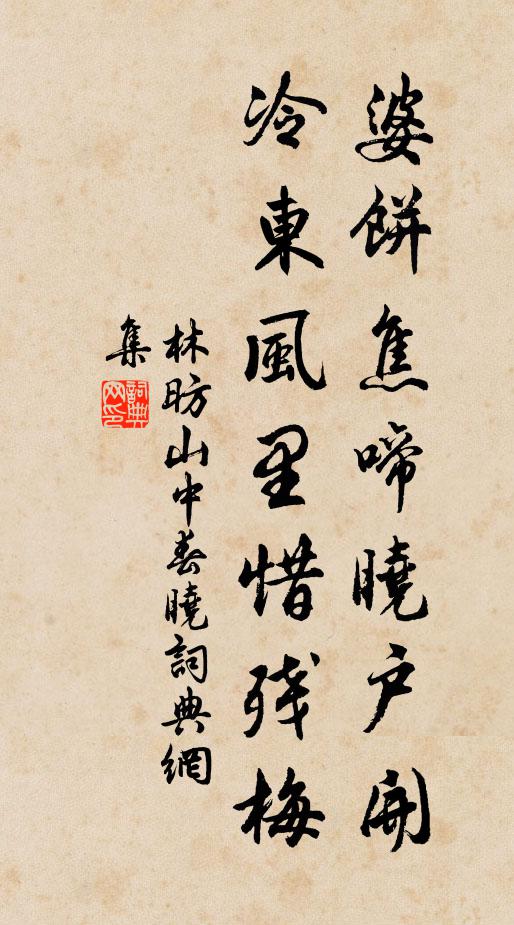 婆餅焦啼曉户開
冷東風里惜残梅
林昉山中春曉詞典網
集
詞典網印